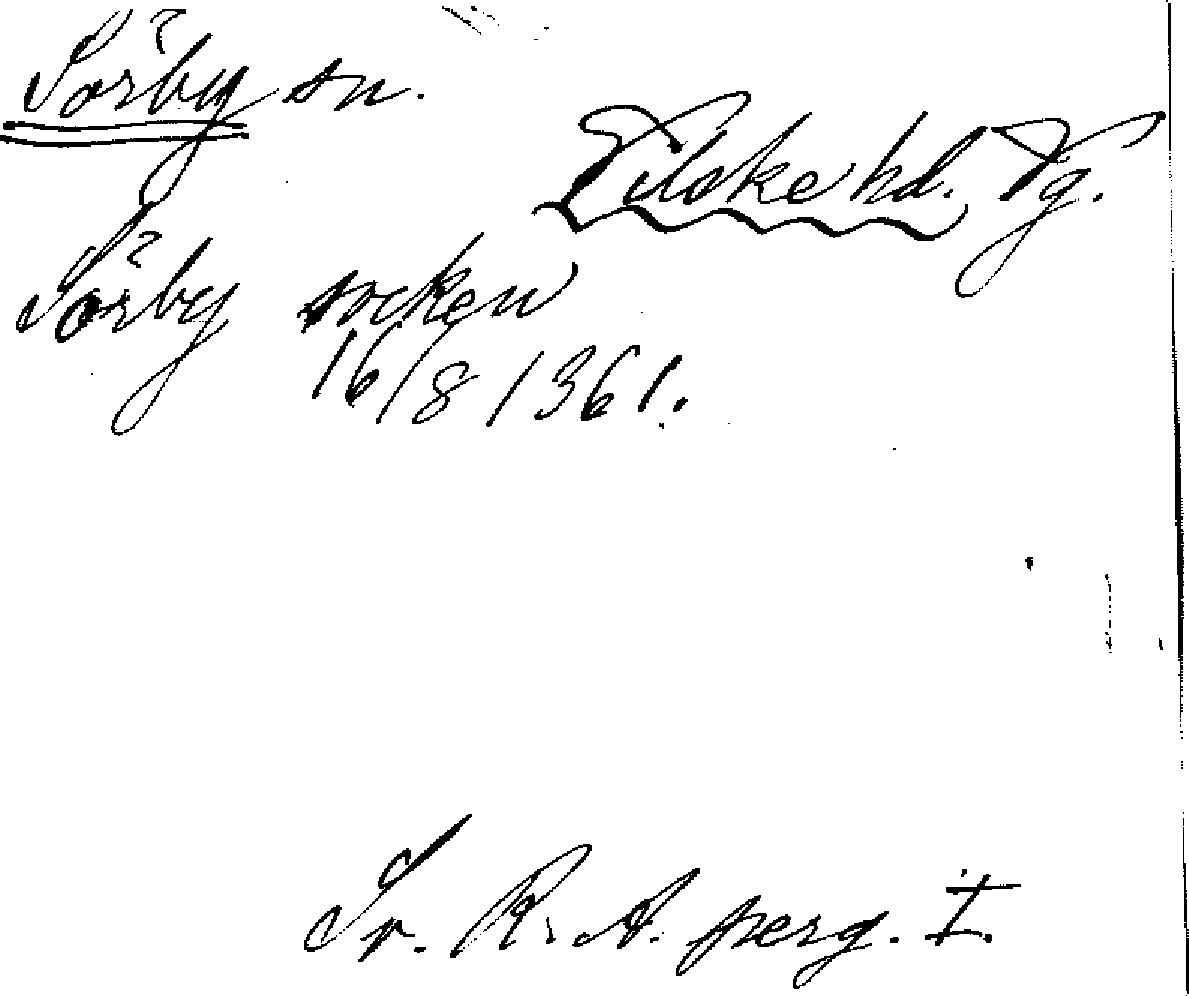 Sörby sn.
Vilske hd. Vg.
Sörby socken
16/8 1361.
Sv. R. A. perg. I.